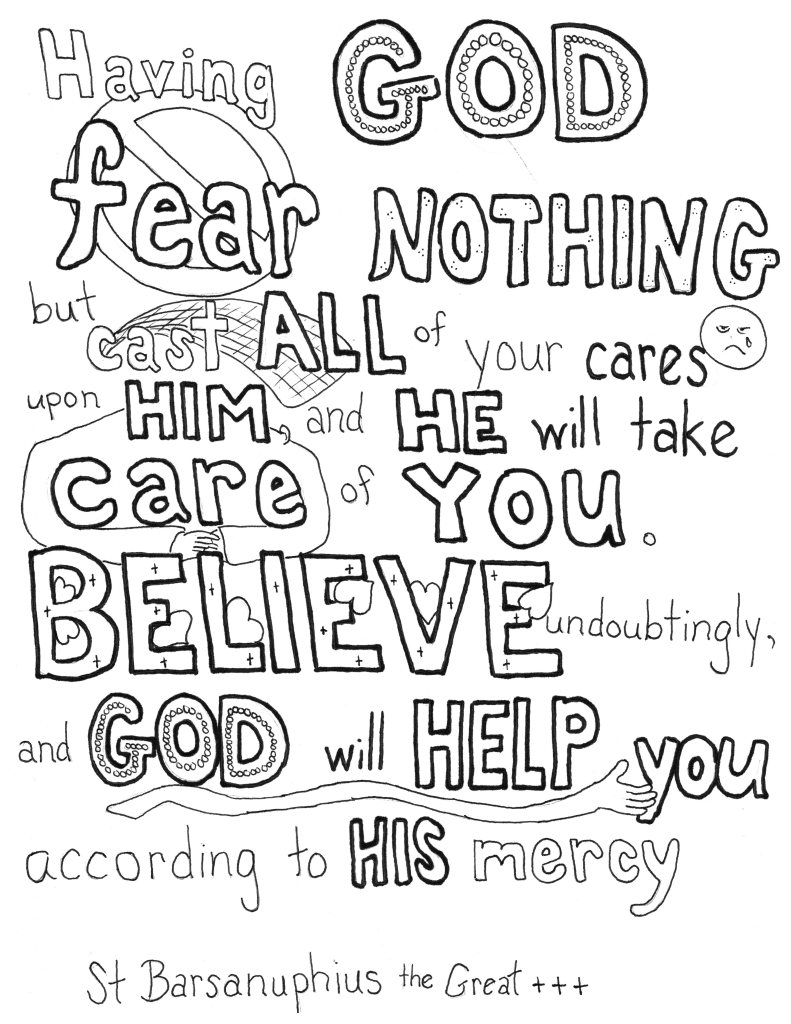 Having GOD
fear NOTHING
but cast ALL of your cares
upon HIM, and HE will take
care of YOU.
BELIEVE undoubtingly,
and GOD will HELP you
according to HIS mercy
St Barsanuphius the Great +++